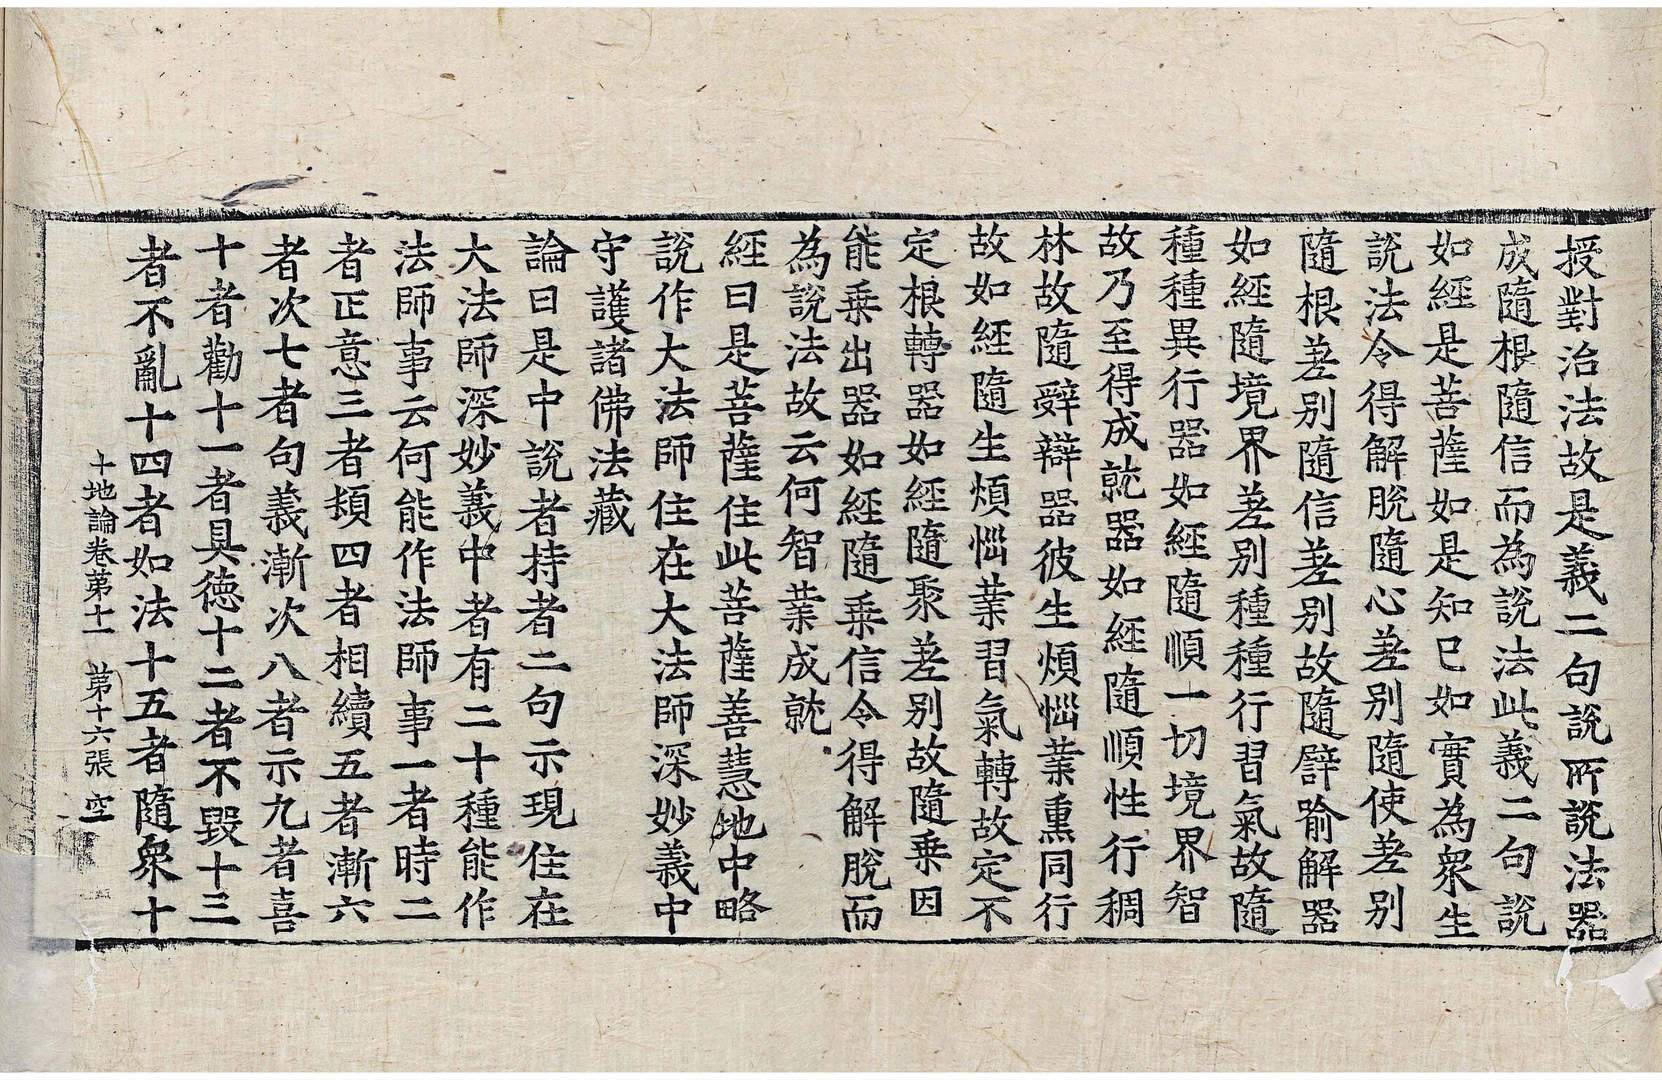 授對治法故是義二句說所說法器
成隨根隨信而為說法此義二句說
如經是菩薩如是知已如實為衆生
說法令得解脫隨心差別隨使差別
隨根差別隨信差別故隨譬喻解器
如經隨境界差別種種行習氣故隨
種種異行器如經隨順一切境界智
故乃至得成就器如經隨順性行稠
林故隨辭辯器彼生煩惱業熏同行
故如經隨生煩惱業習氣轉故定不
定根轉器如經隨聚差別故隨乗因
能乗出器如經隨乗信令得解脫而
為說法故云何智業成就
經曰是菩薩住此菩薩善慧地中略
說作大法師住在大法師深妙義中
守護諸佛法藏
論曰是中說者持者二句示現住在
大法師深妙義中者有二十種能作
法師事云何能作法師事一者時二
者正意三者頻四者相續五者漸六
者次七者句義漸次八者示九者喜
十者勸十一者具德十二者不毀十三
者不亂十四者如法十五者隨衆十
十地論卷第十一　第十六張　空